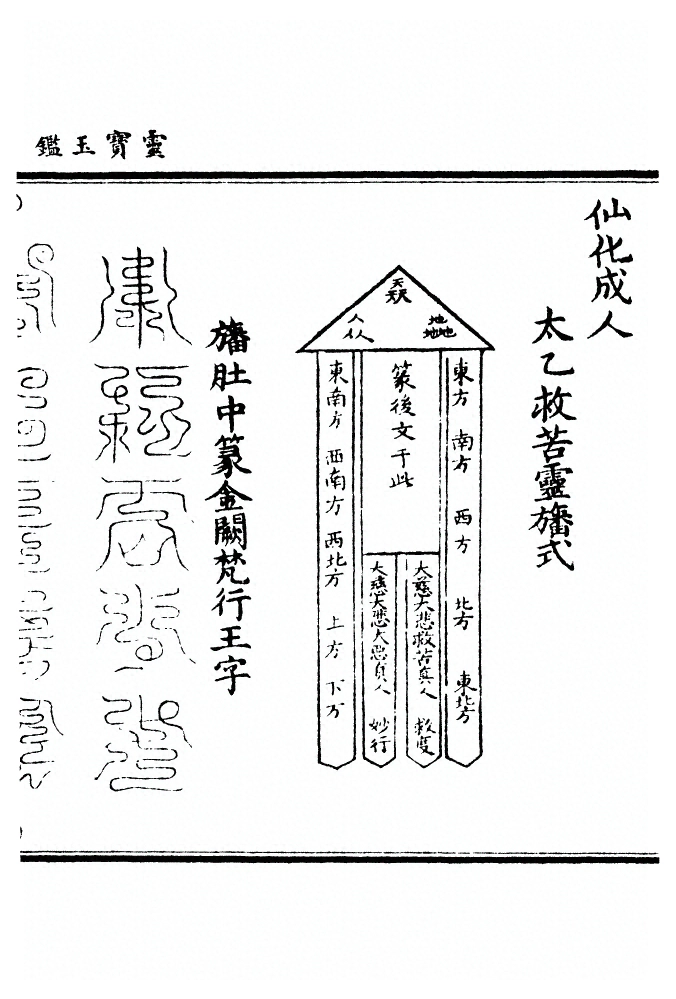 靈寶玉鑑
仙化成人
太乙救苦靈旛式
天天天
地地地
人人人
東方 南方 西方 北方 東北方
篆後文于此
大慈大悲救苦真人 救度
大慈大悲大惠真人 妙行
東南方 西南方 西北方 上方 下方
旛肚中篆金闕梵行王字